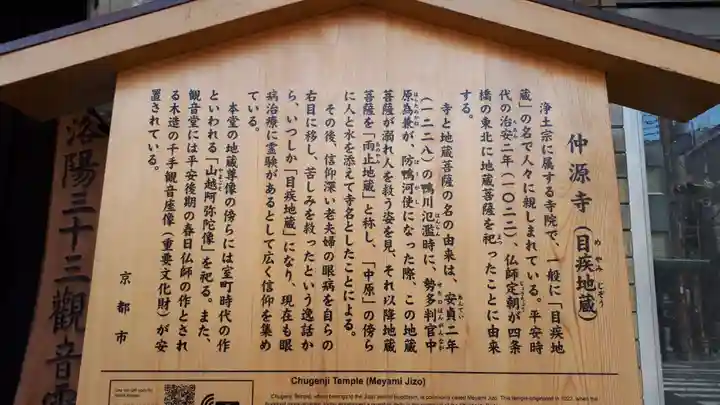 仲源寺（目疾地蔵）
めやみじぞう
浄土宗に属する寺院で、一般に「目疾地
蔵」の名で人々に親しまれている。平安時
代の治安二年（一〇二二）、仏師定朝が四条
橋の東北に地蔵菩薩を祀ったことに由来
する。
寺と地蔵菩薩の名の由来は、安貞二年
（一二二八）の鴨川氾濫時に、勢多判官中
原為兼が、防鴨河使になった際、この地蔵
菩薩が溺れ人を救う姿を見、それ以降地蔵
菩薩を「雨止地蔵」と称し、「中原」の傍ら
に人と水を添えて寺名としたことによる。
その後、信仰深い老夫婦の眼病を自らの
右目に移し、苦しみを救ったという逸話か
ら、いつしか「目疾地蔵」になり、現在も眼
病治療に霊験があるとして広く信仰を集め
ている。
本堂の地蔵尊像の傍らには室町時代の作
といわれる「山越阿弥陀像」を祀る。また、
観音堂には平安後期の春日仏師の作とされ
る木造の千手観音座像（重要文化財）が安
置されている。
京都市
洛陽三十三観音霊
Chugenji Temple (Meyami Jizo)
Chugenji Temple, which belongs to the Jodo sect of Buddhism, is commonly called Meyami Jizo. This temple originated in 1022, when the